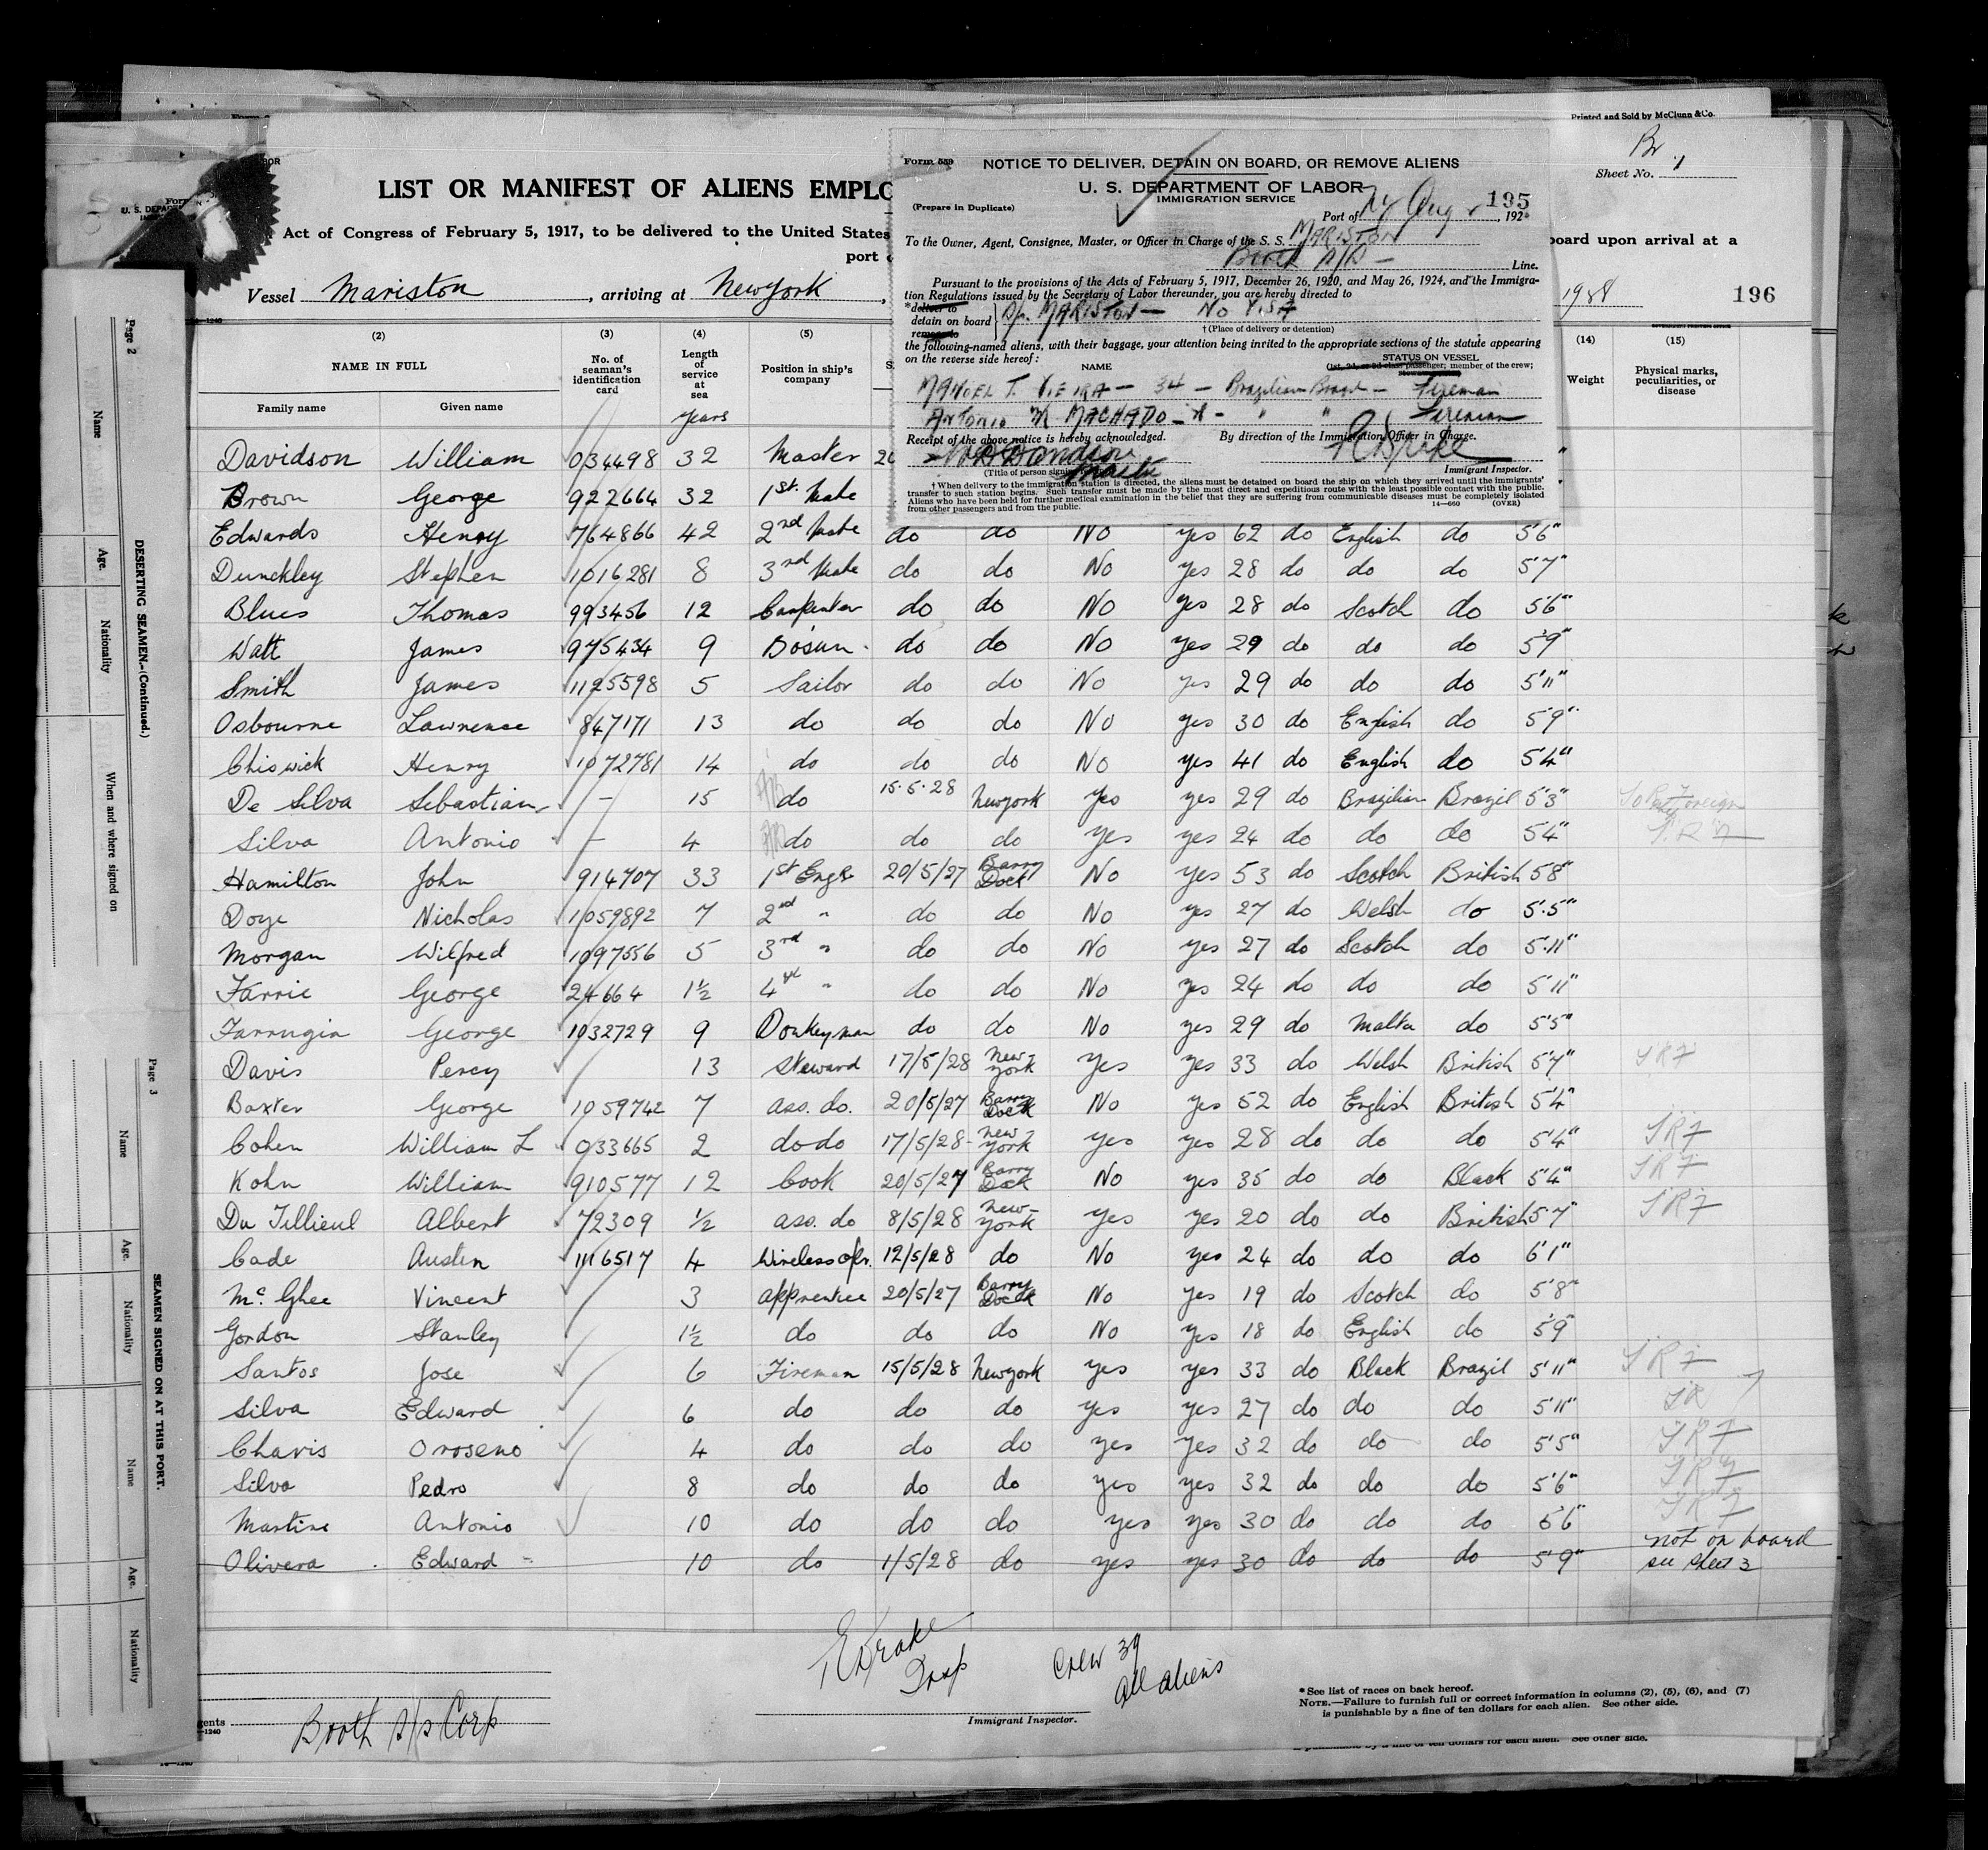 Printed and Sold by McClunn & Co.
Br 1
Sheet No.
LIST OR MANIFEST OF ALIENS EMPLO
Act of Congress of February 5, 1917, to be delivered to the United States
board upon arrival at a
port
Vessel Mariston, arriving at New York,
196
Form 559
NOTICE TO DELIVER, DETAIN ON BOARD, OR REMOVE ALIENS
U. S. DEPARTMENT OF LABOR
IMMIGRATION SERVICE
(Prepare in Duplicate)
195
Port of NY Aug , 192
To the Owner, Agent, Consignee, Master, or Officer in Charge of the S. S. MARISTON
Booth S/S Line.
Pursuant to the provisions of the Acts of February 5, 1917, December 26, 1920, and May 26, 1924, and the Immigra-
tion Regulations issued by the Secretary of Labor thereunder, you are hereby directed to
*deliver to
detain on board S/S MARISTON — NO VISA
remove to
† (Place of delivery or detention)
the following-named aliens, with their baggage, your attention being invited to the appropriate sections of the statute appearing
on the reverse side hereof:
NAME STATUS ON VESSEL
(1st, 2d, or 3d class passenger; member of the crew;
MANOEL T. VIEIRA — 34 — Brazilian Brazil — Fireman
ANTONIO M MACHADO — " " Fireman
Receipt of the above notice is hereby acknowledged. By direction of the Immigration Officer in Charge.
Master
(Title of person signing
Immigrant Inspector.
† When delivery to the immigration station is directed, the aliens must be detained on board the ship on which they arrived until the immigrants'
transfer to such station begins. Such transfer must be made by the most direct and expeditious route with the least possible contact with the public.
Aliens who have been held for further medical examination in the belief that they are suffering from communicable diseases must be completely isolated
from other passengers and from the public. 14—660 (OVER)
(2) (3) (4) (5) (14) (15)
NAME IN FULL
Family name Given name
No. of seaman's identification card
Length of service at sea
years
Position in ship's company
Weight
Physical marks, peculiarities, or disease
Davidson William 034498 32 Master
Brown George 922664 32 1st Mate
Edwards Henry 764866 42 2nd Mate do do No yes 62 do English do 5'6"
Dunckley Stephen 1016281 8 3rd Mate do do No yes 28 do do do 5'7"
Blues Thomas 993456 12 Carpenter do do No yes 28 do Scotch do 5'6"
Watt James 975434 9 Bosun do do No yes 29 do do do 5'9"
Smith James 1125598 5 Sailor do do No yes 29 do do do 5'11"
Osbourne Lawrence 847171 13 do do do No yes 30 do English do 5'9"
Chiswick Henry 1072781 14 do do do No yes 41 do English do 5'4"
De Silva Sebastian - 15 do 15.5.28 Newyork Yes yes 29 do Brazilian Brazil 5'3"
Silva Antonio - 4 do do do yes yes 24 do do do 5'4"
Hamilton John 914707 33 1st Engr 20/5/27 Barry Dock No yes 53 do Scotch British 5'8"
Doye Nicholas 1059892 7 2nd " do do No yes 27 do Welsh do 5'5"
Morgan Wilfred 1097556 5 3rd " do do No yes 27 do Scotch do 5'11"
Farrie George 24664 1½ 4th " do do No yes 24 do do do 5'11"
Farrugia George 1032729 9 Donkeyman do do No yes 29 do Malta do 5'5"
Davis Percy 13 Steward 17/5/28 New-York Yes yes 33 do Welsh British 5'7" SRF
Baxter George 1059742 7 ass. do. 20/5/27 Barry Dock No yes 52 do English British 5'4"
Cohen William L 933665 2 do do 17/5/28 New-York yes yes 28 do do do 5'4" SRF
Kohn William 910577 12 Cook 20/5/27 Barry Dock No yes 35 do do Black 5'4" SRF
Du Tillieul Albert 72309 ½ ass. do 8/5/28 New-York yes yes 20 do do British 5'7" SRF
Cade Austen 1116517 4 Wireless opr. 12/5/28 do No yes 24 do do do 6'1"
McGhee Vincent 3 apprentice 20/5/27 Barry Dock No yes 19 do Scotch do 5'8"
Gordon Stanley 1½ do do do No yes 18 do English do 5'9
Santos Jose 6 Fireman 15/5/28 Newyork yes yes 33 do Black Brazil 5'11" SRF
Silva Edward 6 do do do yes yes 27 do do do 5'11" SR
Chavis Oroseno 4 do do do yes yes 32 do do do 5'5" SRF
Silva Pedro 8 do do do yes yes 32 do do do 5'6" SRF
Martine Antonio 10 do do do yes yes 30 do do do 5'6" SRF
Olivera Edward 10 do 1/5/28 do yes yes 30 do do do 5'9" not on board see sheet 3
Drake
Insp
Crew 39
all aliens
Immigrant Inspector.
Booth S/S Corp
gents
*See list of races on back hereof.
NOTE.—Failure to furnish full or correct information in columns (2), (5), (6), and (7)
is punishable by a fine of ten dollars for each alien. See other side.
Page 2
DESERTING SEAMEN.—(Continued.)
Name
Age.
Nationality
When and where signed on
Page 3
SEAMEN SIGNED ON AT THIS PORT.
Name
Age.
Nationality
Name
Age.
Nationality